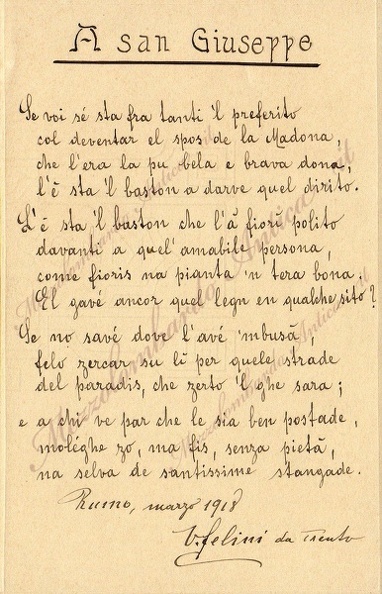 A san Giuseppe
Se voi sé sta fra tanti 'l preferito
col deventar el spos de la Madona,
che l'era la pu bela e brava dona,
l'è sta 'l baston a darve quel dirito.
L'è sta 'l baston che l'ă fiorĭ polito
davanti a quel' amabile persona,
come fioris na pianta 'n tera bona.
El gavé ancor quel legn en qualche sito?
Se no savé dove l'avé 'mbusă,
felo zercar su lŭ per quele strade
del paradis, che zerto 'l ghe sara;
e a chi ve par che le sia ben postade,
moléghe zo, ma fis, senza pietă,
na selva de santissime stangade.
Rumo, marzo 1918
V. Felini da Trento